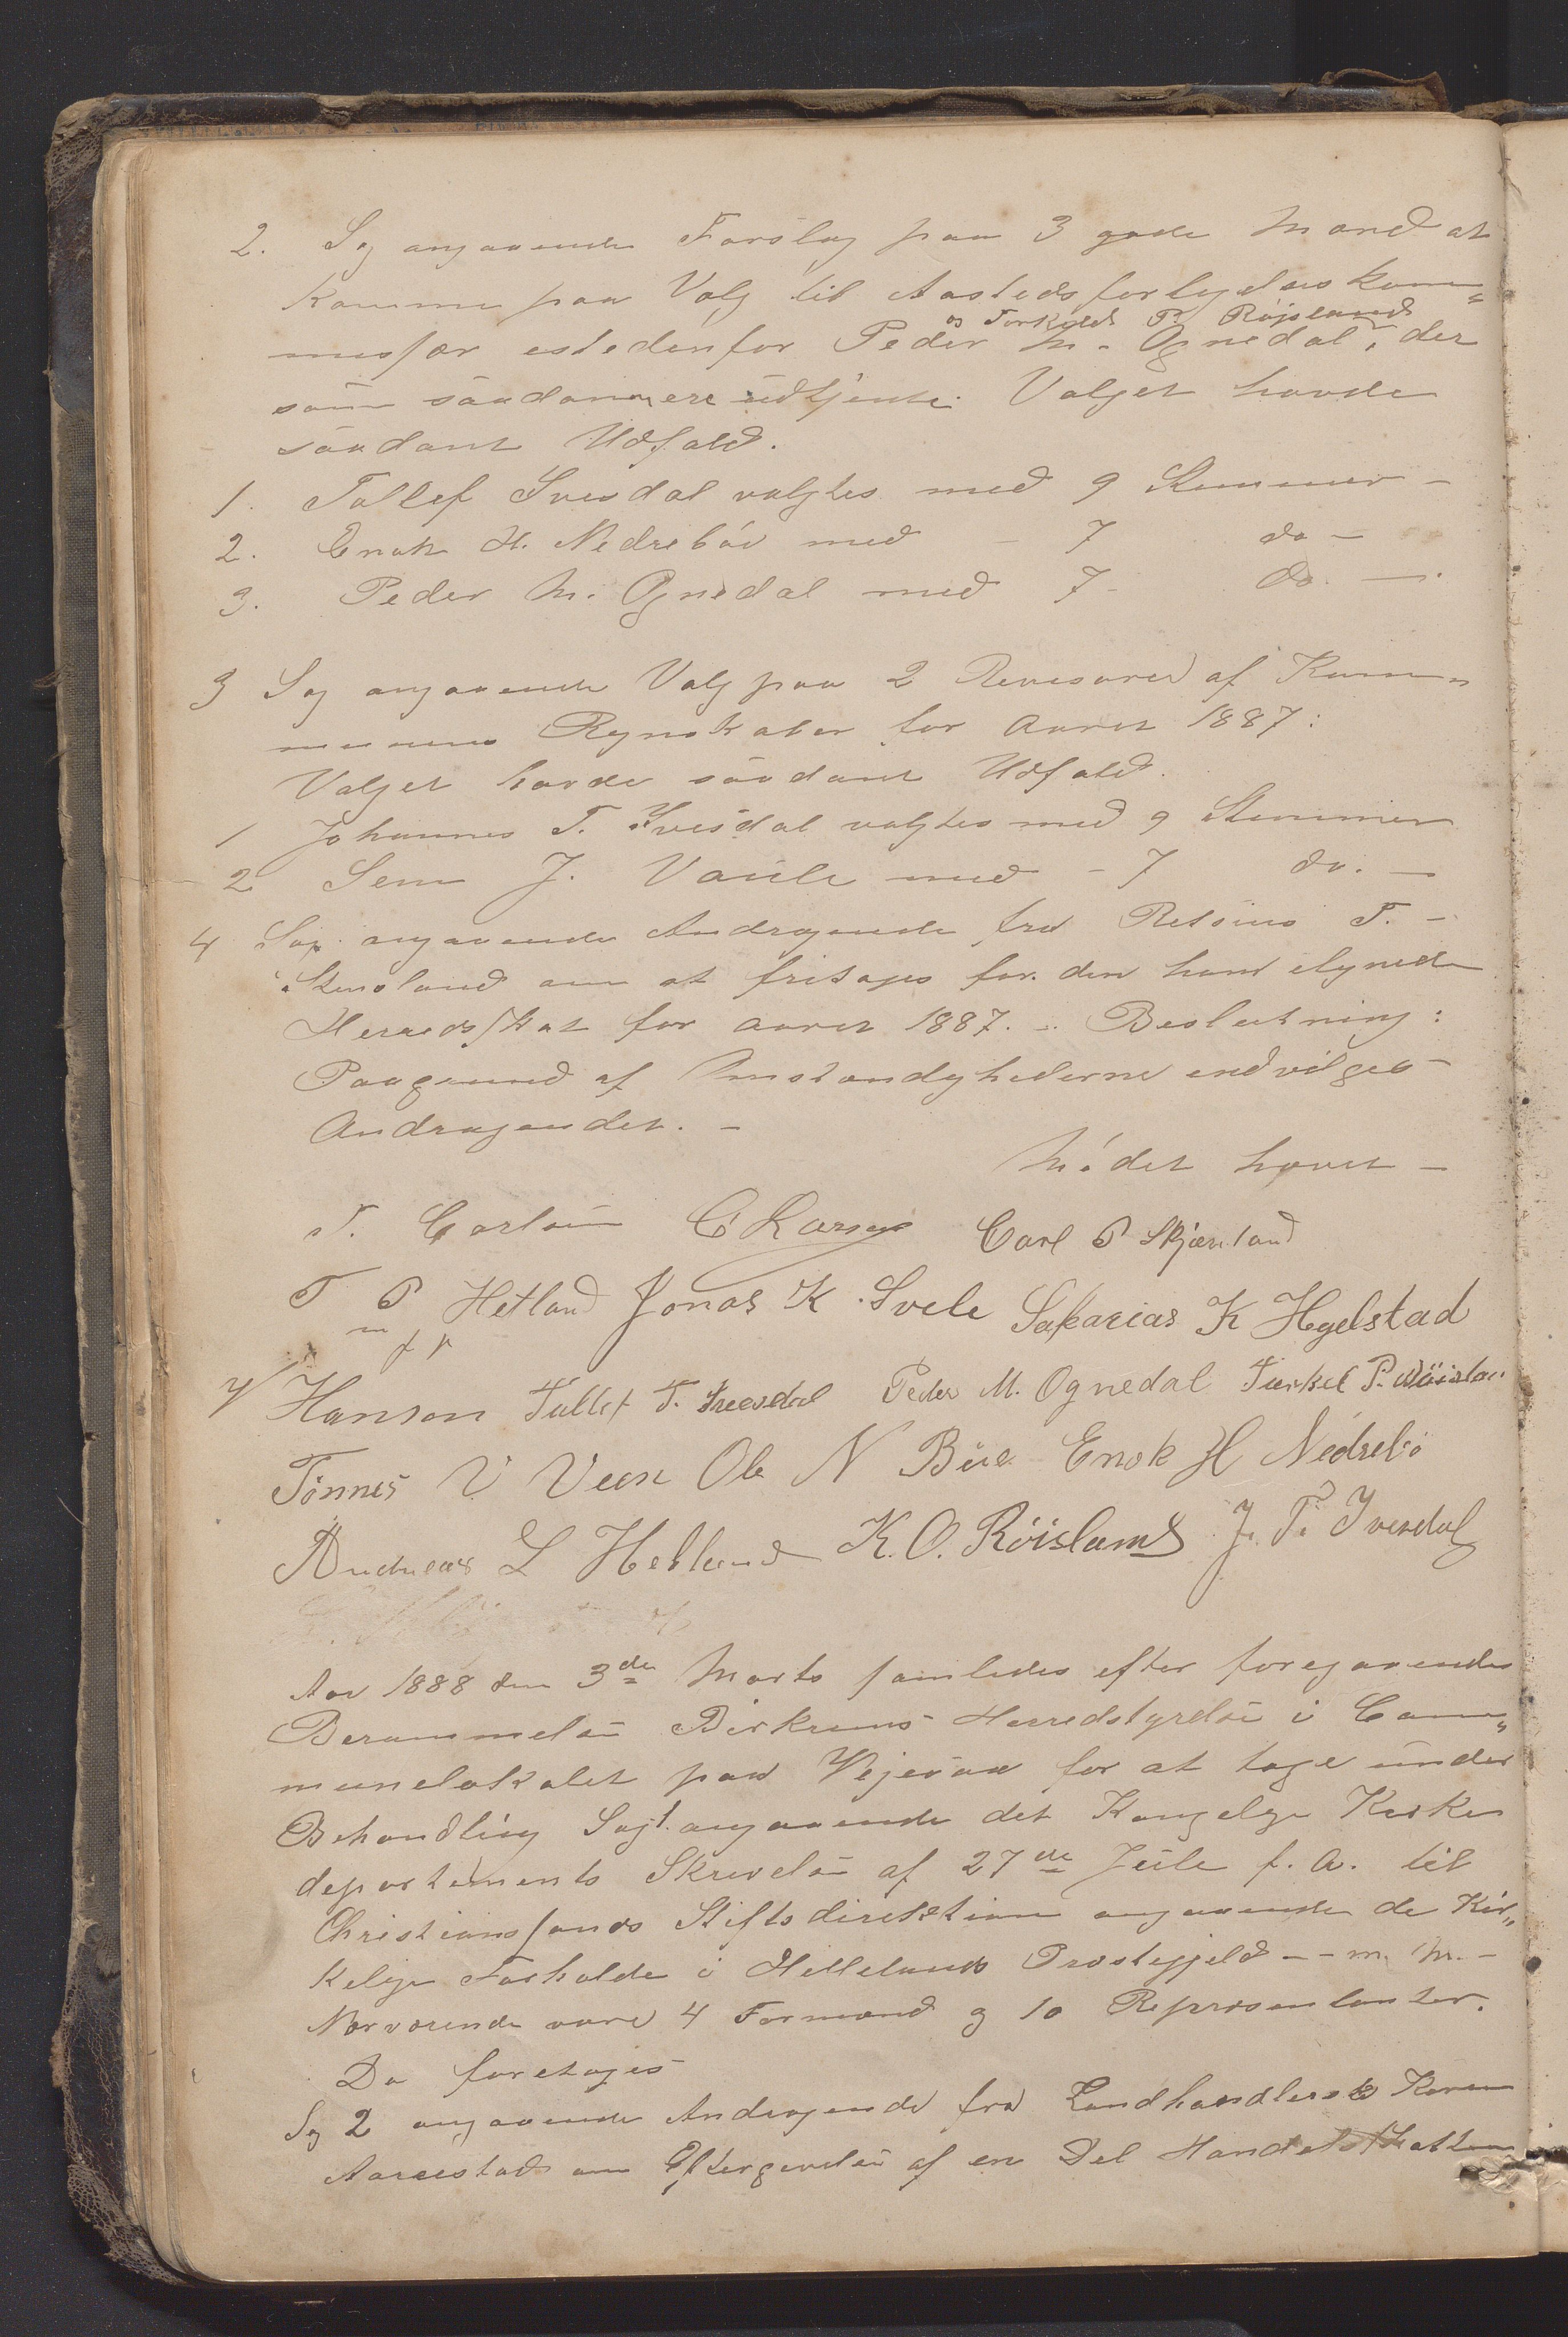 2. Sag angaaende Forslag paa 3 gode Mænd at
komme paa Valg til Aastedsforligelseskom„
misær istedenfor Peder M. Ognedal, der
og Torkild P. Røjsland
som saadanne ere udtjente. Valget havde
saadant Udfald.
1. Tollef Ivesdal valgtes med 9 Stemmer –
2. Enok H. Nedrebøe med – 7 do –
3. Peder M. Ognedal med 7 – do. –
3 Sag angaaende Valg paa 2 Revisorer af Kom„
munens Regnskaber for Aaret 1887:
Valget havde saadant Udfald.
1 Johannes T. Ivesdal valgtes med 9 Stemmer
2 Sem J. Vaule med – 7 do. –
4 Sag angaaende Andragende fra T. –
Stensland om at fritages for den ham ilignede
Heredsskat for Aaret 1887. – Beslutning:
Paagrund af Omstændighederne indvilges
Andragendet. –
Mødet hævet –
T. C Larsen Carl P Skjæveland
T P Hetland Jonas K. Svele Sakarias K Hegelstad
m f p
Hanson Tollef T. Ivesdal Peder M. Ognedal Torkel P. Røislan
Tønnes V Veen Ole N Bue Enok H Nedrebø
Andreas L Hetland K. O. Røisland J. T. Ivesdal
Aar 1888 den 3de Marts samledes efter foregaaende
Berammelse Birkrems Herredstyrelse i Com„
munelokalet paa Vejeraa for at tage under
Behandling Sag 1. angaaende det Kongelige Kirke
departements Skrivelse af 27de Juli f. A. til
Christianssands Stiftsdirektion angaaende de Kir„
kelige Forholde i Hellelands Prestegjeld – – m. M. –
Nærværende vare 4 Formænd og 10 Repræsentanter.
Da foretoges
Sag 2 angaaende Andragende fra Landhandlerske Karen
Aarrestad om Eftergivelse af en Del Handelsskatten